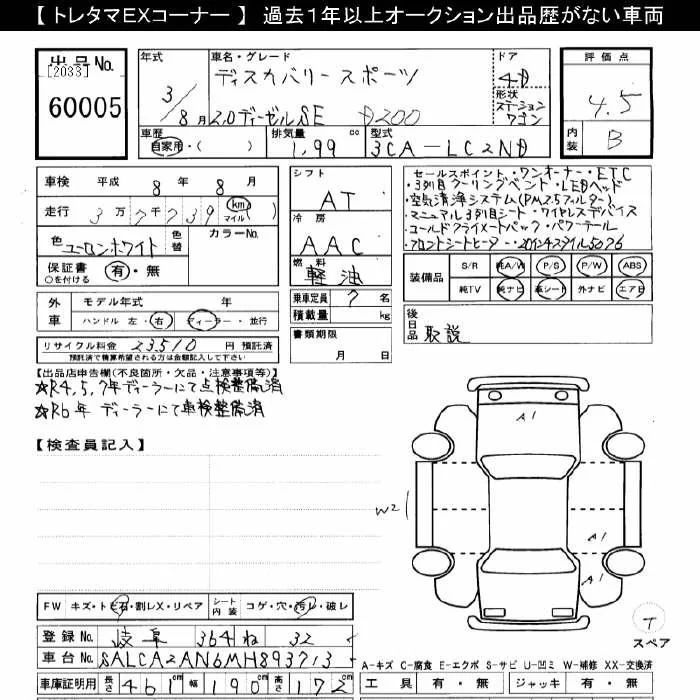 【 トレタマEXコーナー 】 過去1年以上オークション出品歴がない車両
出品No.
[2033]
60005
年式
3/8月
車名・グレード
ディスカバリースポーツ
2.0ディーゼルSE D200
ドア
4D
形状
ステーションワゴン
評価点
4.5
内装
B
車歴
自家用・( )
排気量
1.99 cc
型式
3CA-LC2ND
車検 平成 8年 8月
走行 3万7千739 km マイル
色 ユーロンホワイト
色替
カラーNo.
保証書 有・無
○を付ける
シフト
AT
冷房
AAC
燃料
軽油
乗車定員 7 名
積載量 kg
セールスポイント・ワンオーナー・ETC
・3列目クーリングベント・LEDヘッド
・空気清浄システム(PM2.5フィルター)
・マニュアル3列目シート・ワイヤレスデバイス
・コールドクライメートパック・パワーテール
・フロントシートヒーター・20インチスタイル5076
装備品
S/R
純A/W
P/S
P/W
ABS
純TV
純ナビ
革シート
外ナビ
エアB
外車
モデル年式 年
ハンドル 左・右
ディーラー・並行
リサイクル料金 23510 円 預託済
預託済で精算希望される方は金額記入して下さい
書類期限
月 日
後日品
取説
【出品店申告欄(不良箇所・欠品・注意事項等)】
☆R4,5,7年ディーラーにて点検整備済
☆R6年 ディーラーにて車検整備済
【検査員記入】
A1
W2
A1
A1
FW キズ・トビ石・割レX・リペア
シート内装 コゲ・穴・汚レ・破レ
T
スペア
登録No. 岐阜 364 ね 32
車台No. SALCA2AN6MH893713
A-キズ C-腐食 E-エクボ S-サビ U-凹ミ W-補修 XX-交換済
車庫証明用 長さ 461 cm 幅 190 cm 高さ 172 cm
工具 有・無 ジャッキ 有・無